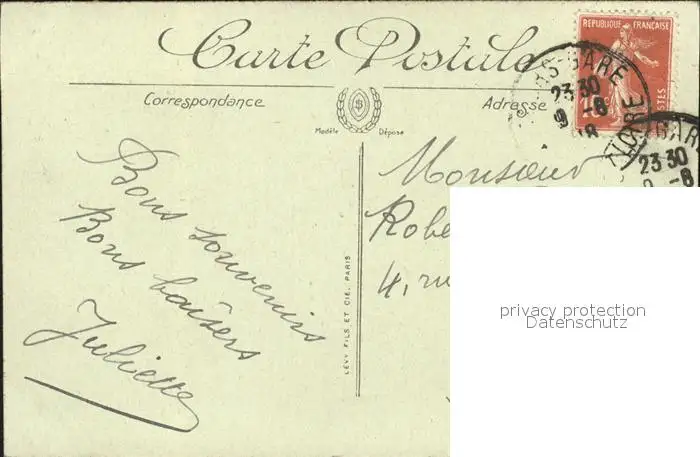 Carte Postale
Correspondance
Adresse
Modèle Déposé
RÉPUBLIQUE FRANÇAISE
POSTES
GARE
23 30
9 -8
18
GARE
23 30
-8
Bons souvenirs
Bons baisers
Juliette
Monsieur
4, ru
LÉVY FILS ET CIE, PARIS
privacy protection
Datenschutz